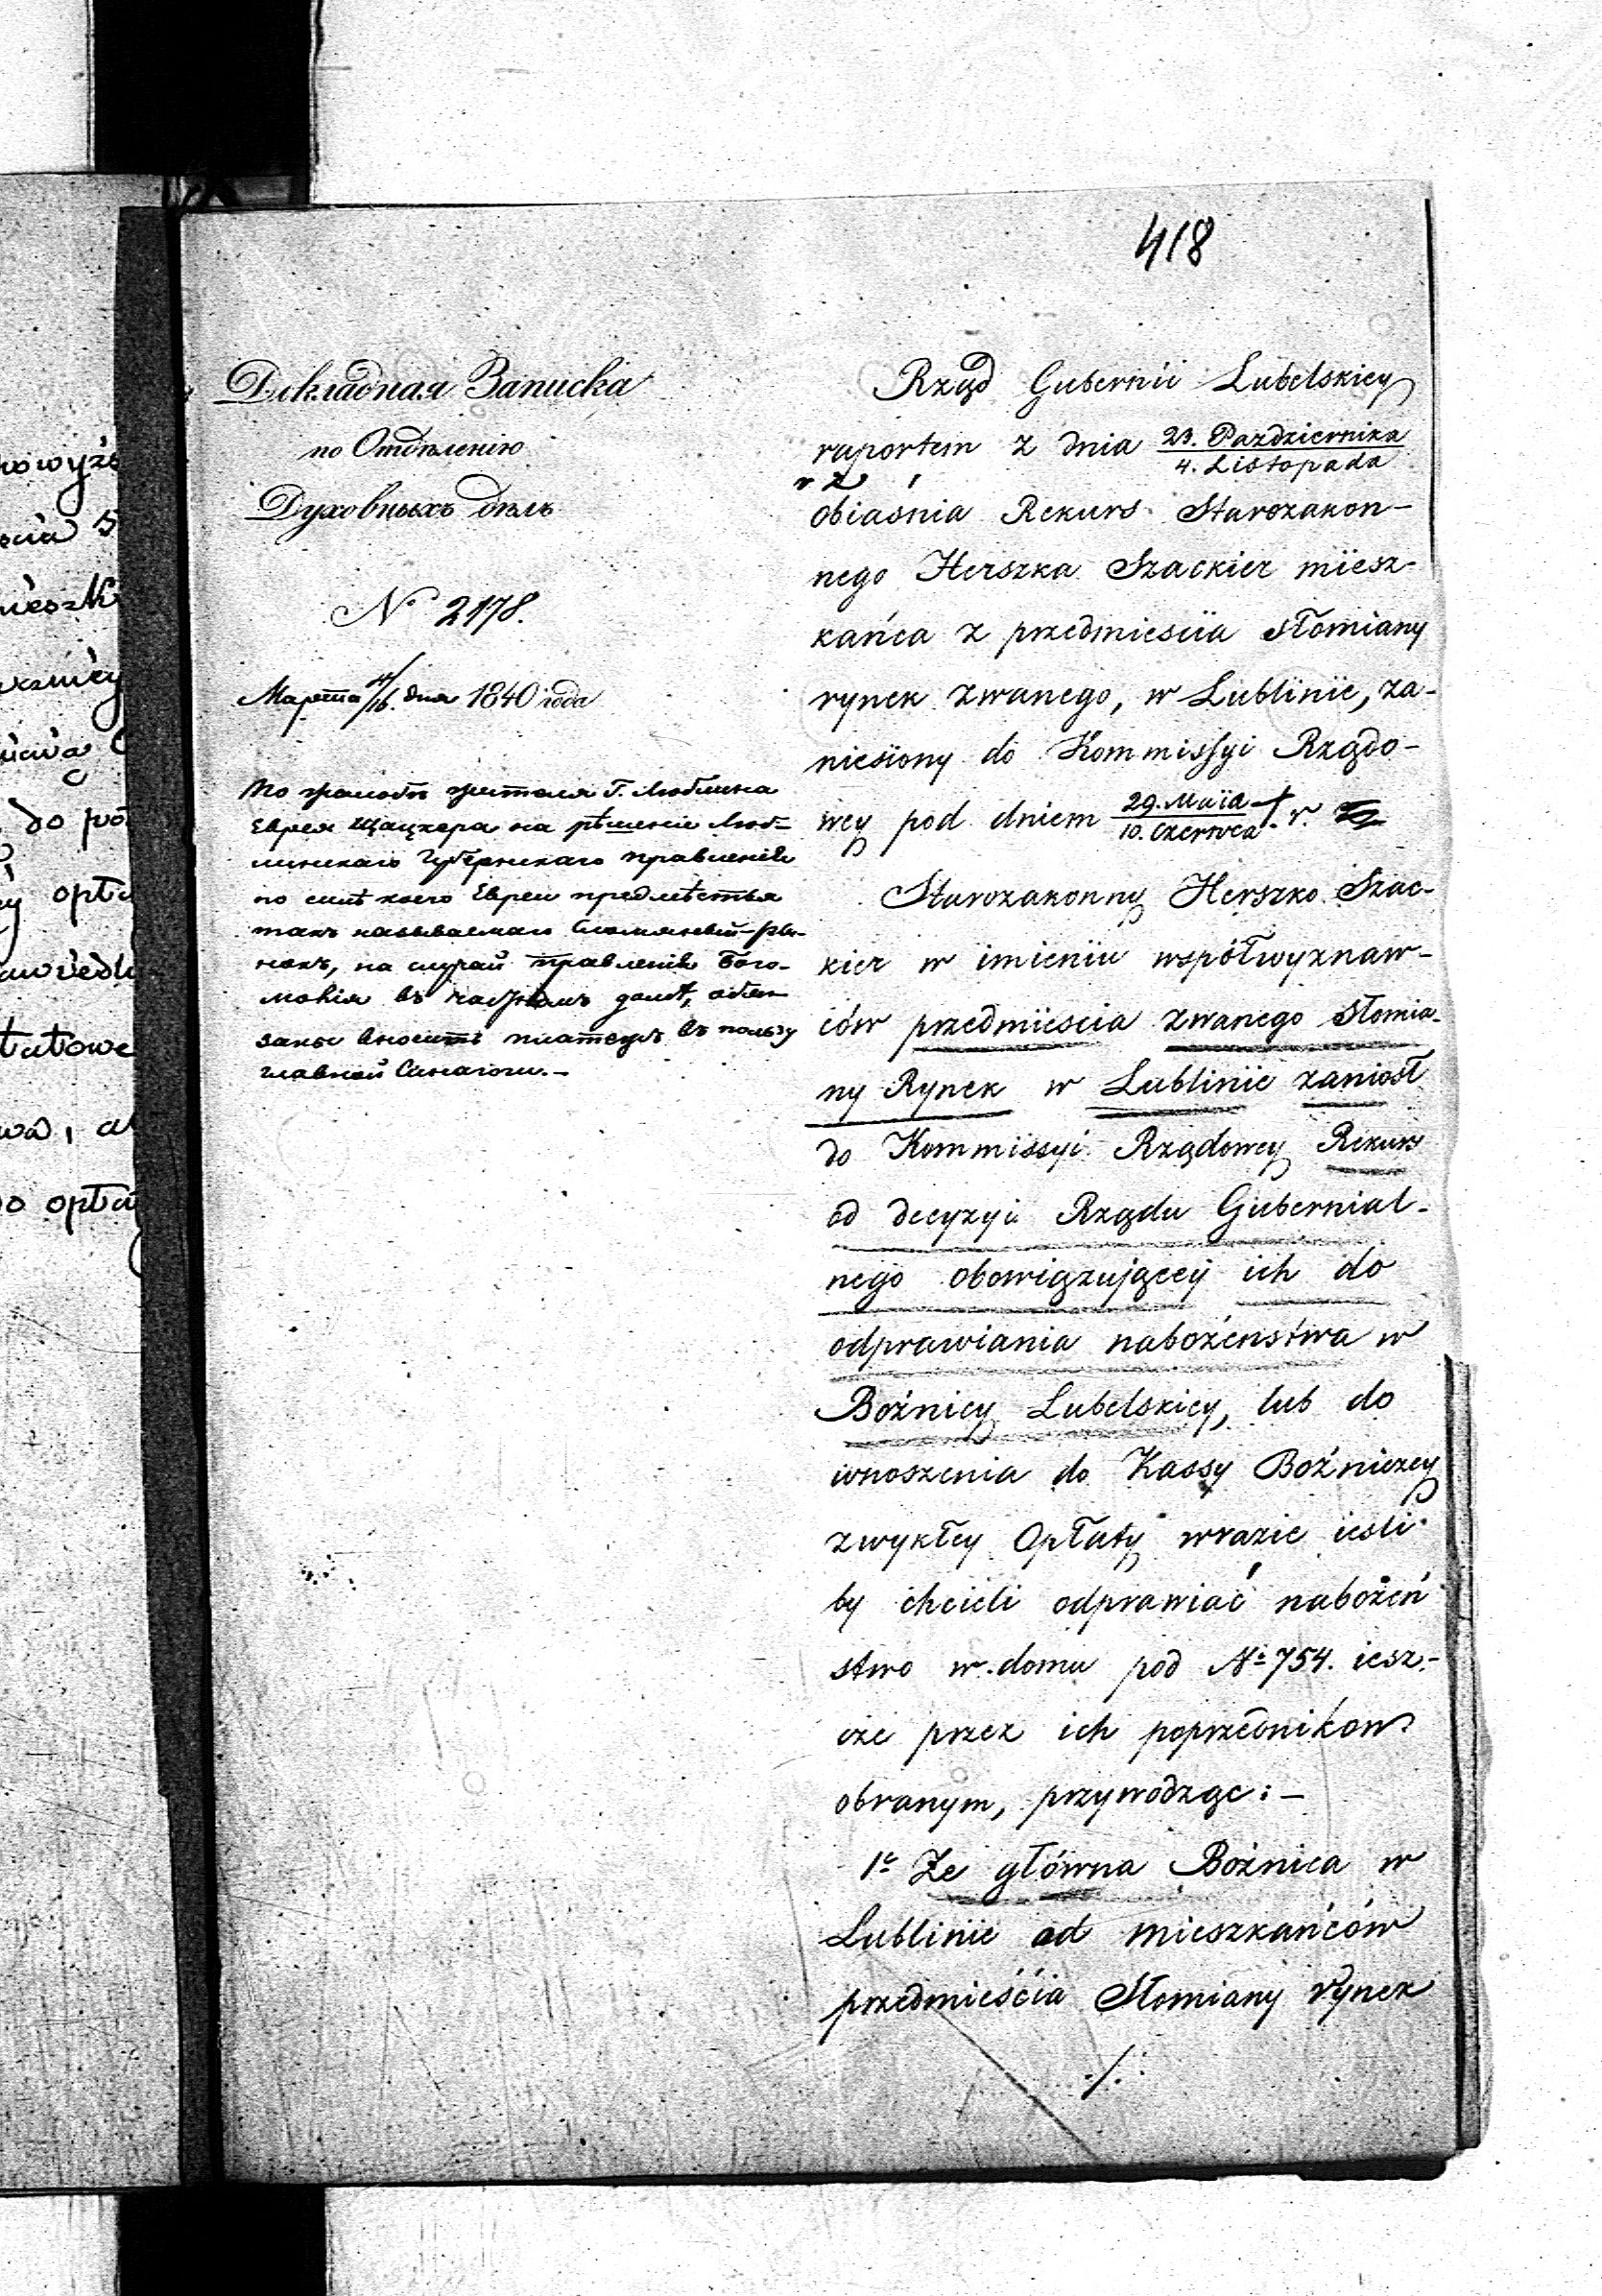 418
Докладная Записка
по Отдѣленію
Духовныхъ дѣлъ
№ 2178.
Марта 4/16. дня 1840 года
По жалобѣ жителя Г. Люблина
Еврея Щацкера на рѣшеніе Люб-
линскаго Губернскаго Правленія
по силѣ коего Евреи предмѣстья
такъ называемаго Сломяный-Ры-
нокъ, на случай Бого-
молія въ домѣ, обя-
заны вносить платежъ въ пользу
главной Синагоги.-
Rząd Gubernii Lubelskiey
raportem z dnia 23. Pazdziernika / 4. Listopada
r z
obiaśnia Rekurs Starozakon-
nego Herszka Szackier miesz-
kańca z przedmiescia Słomiany
rynek zwanego, w Lublinie, za-
niesiony do Kommissyi Rządo-
wey pod dniem 29. Maia / 10. Czerwca t. r.
Starozakonny Herszko Szac-
kier w imieniu współwyznaw-
ców przedmiescia zwanego Słomia-
ny Rynek w Lublinie zaniosł
do Kommissyi Rządowey Rekurs
od decyzyi Rządu Gubernial-
nego obowiązującey ich do
odprawiania nabożenstwa w
Bożnicy Lubelskiey, lub do
wnoszenia do Kassy Bożniczey
zwykłey Opłaty wrazie iesli
by chcieli odprawiać nabożeń
stwo w domu pod № 754. iesz-
cze przez ich poprzednikow
obranym, przywodząc: -
1e Ze główna Bożnica w
Lublinie od mieszkańców
przedmieśćia Słomiany Rynek
./.
nowyżs
mieszk
do pó
opła
awiedli
tutowe
wa, a
o opła